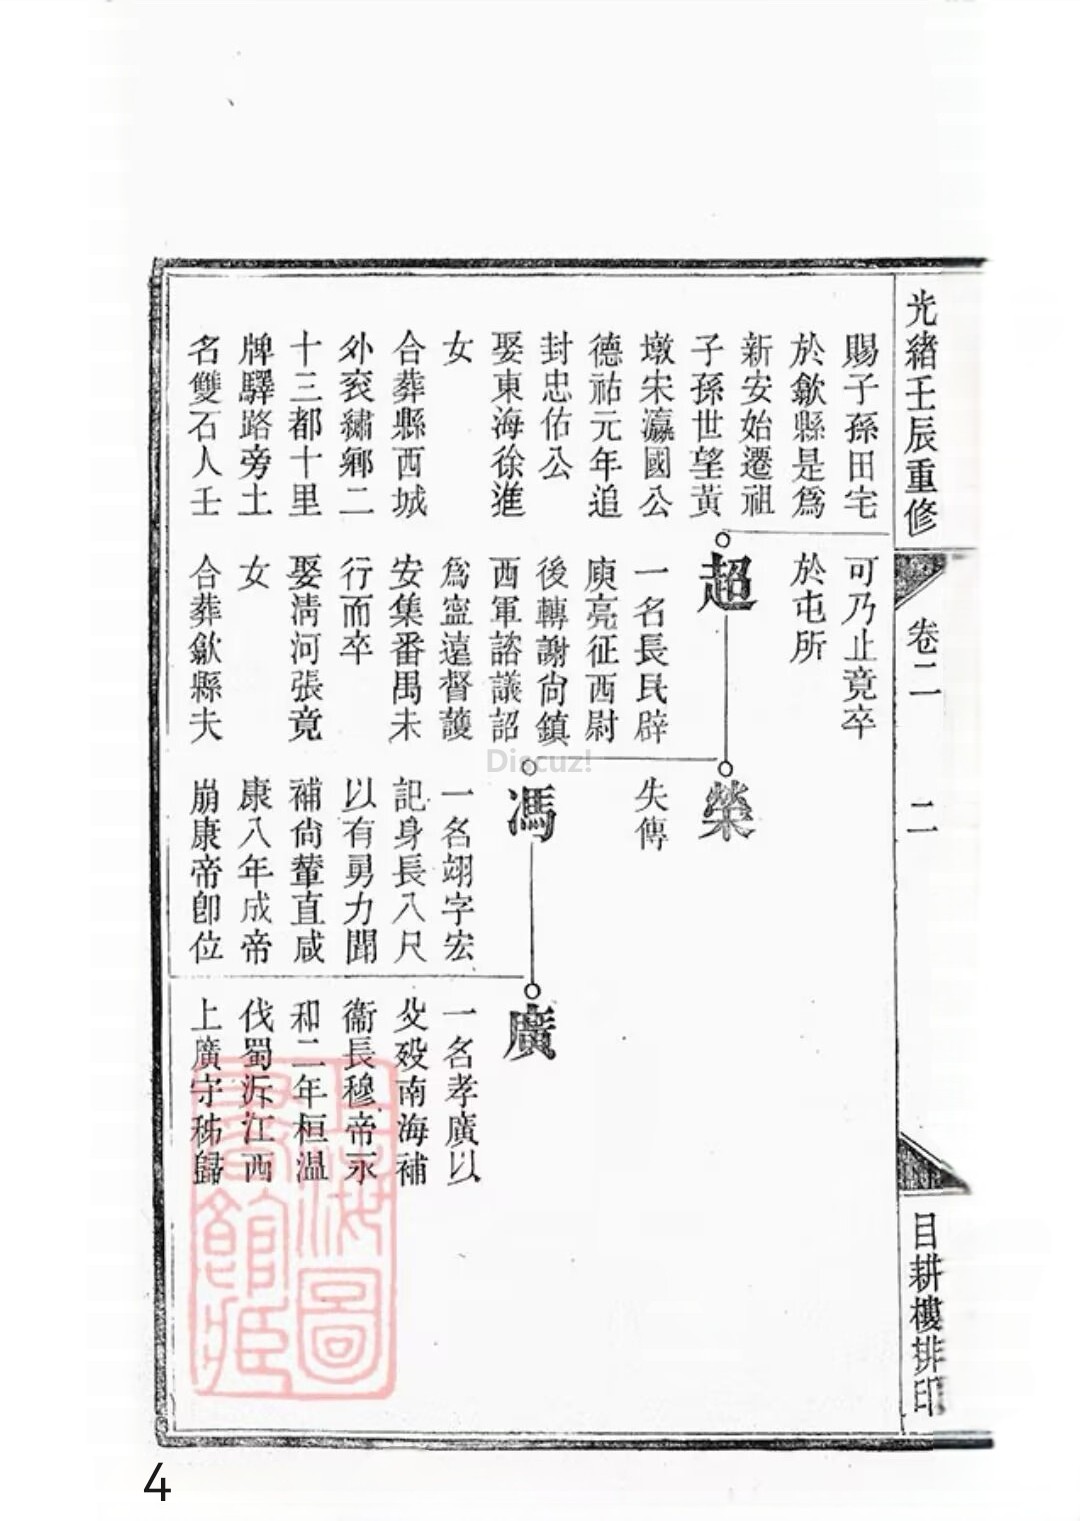 光緒壬辰重修
卷二
二
目耕樓排印
賜子孫田宅
於歙縣是爲
新安始遷祖
子孫世望黃
墩宋瀛國公
德祐元年追
封忠佑公
娶東海徐進
女
合葬縣西城
外袞繡鄉二
十三都十里
牌驛路旁土
名雙石人壬
可乃止竟卒
於屯所
超
一名長民辟
庾亮征西尉
後轉謝尙鎮
西軍諮議詔
爲寧遠督護
安集番禺未
行而卒
娶淸河張竟
女
合葬歙縣夫
榮
失傳
馮
一名翊字宏
記身長八尺
以有勇力聞
補尙輦直咸
康八年成帝
崩康帝卽位
廣
一名孝廣以
父歿南海補
衞長穆帝永
和二年桓溫
伐蜀泝江西
上廣守秭歸
上海圖
書館藏
Discuz!
4